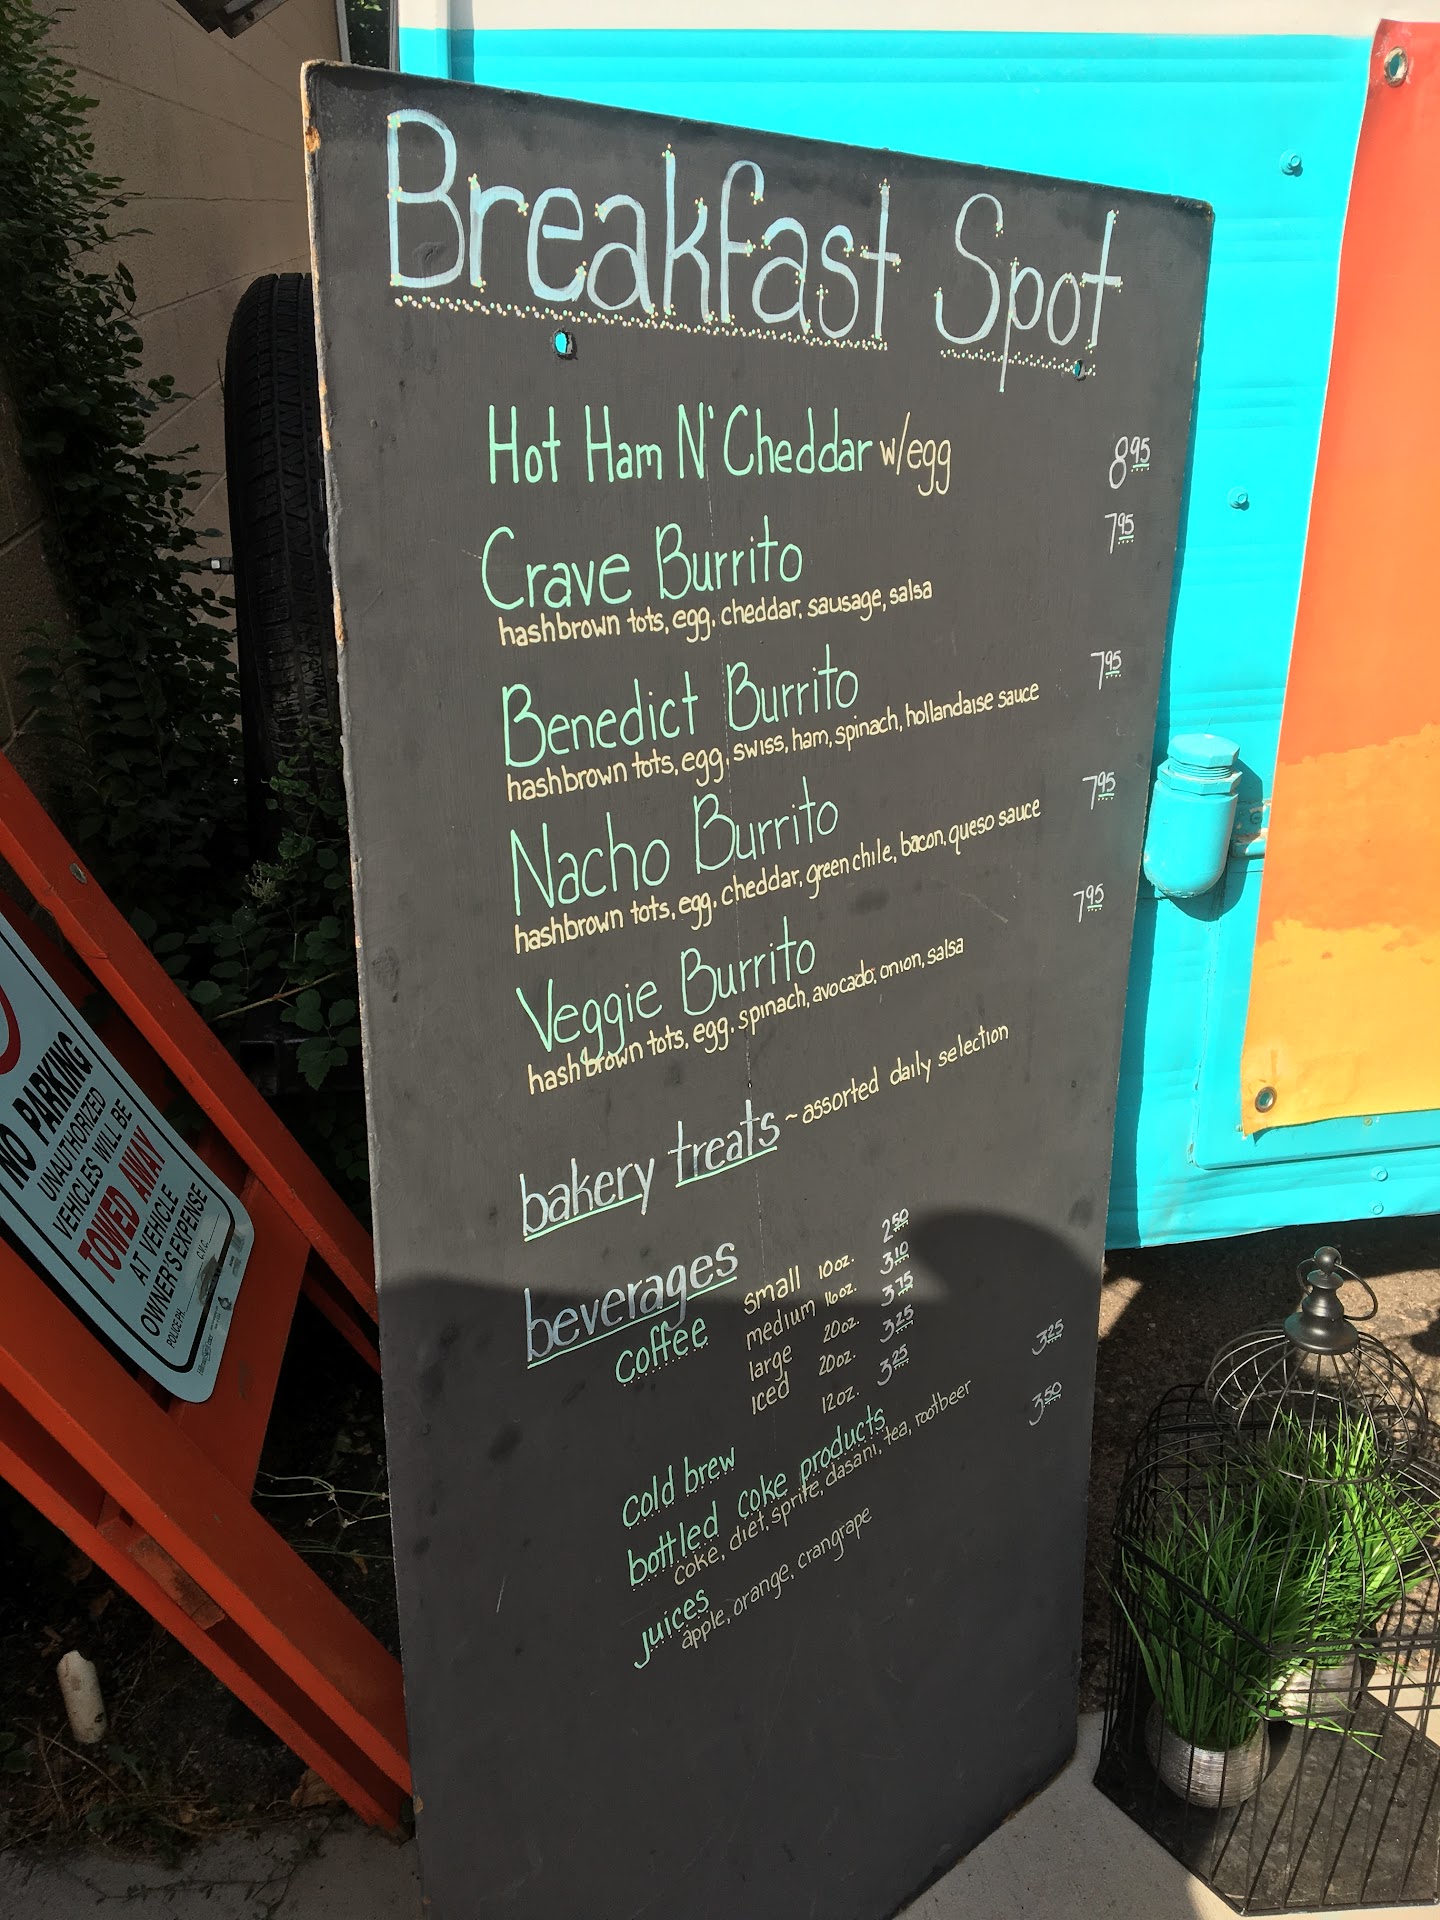 Breakfast Spot
Hot Ham N' Cheddar w/egg 8.95
Crave Burrito 7.95
hashbrown tots, egg, cheddar, sausage, salsa
Benedict Burrito 7.95
hashbrown tots, egg, swiss, ham, spinach, hollandaise sauce
Nacho Burrito 7.95
hashbrown tots, egg, cheddar, green chile, bacon, queso sauce
Veggie Burrito 7.95
hashbrown tots, egg, spinach, avocado, onion, salsa
bakery treats ~ assorted daily selection
beverages
coffee small 10oz. 2.50
medium 16oz. 3.10
large 20oz. 3.75
iced 20oz. 3.25
cold brew 12oz. 3.25
bottled coke products 3.25
coke, diet, sprite, dasani, tea, rootbeer
juices 3.50
apple, orange, crangrape
NO PARKING
UNAUTHORIZED
VEHICLES WILL BE
TOWED AWAY
AT VEHICLE
OWNER'S EXPENSE
POLICE PH. C.V.C.